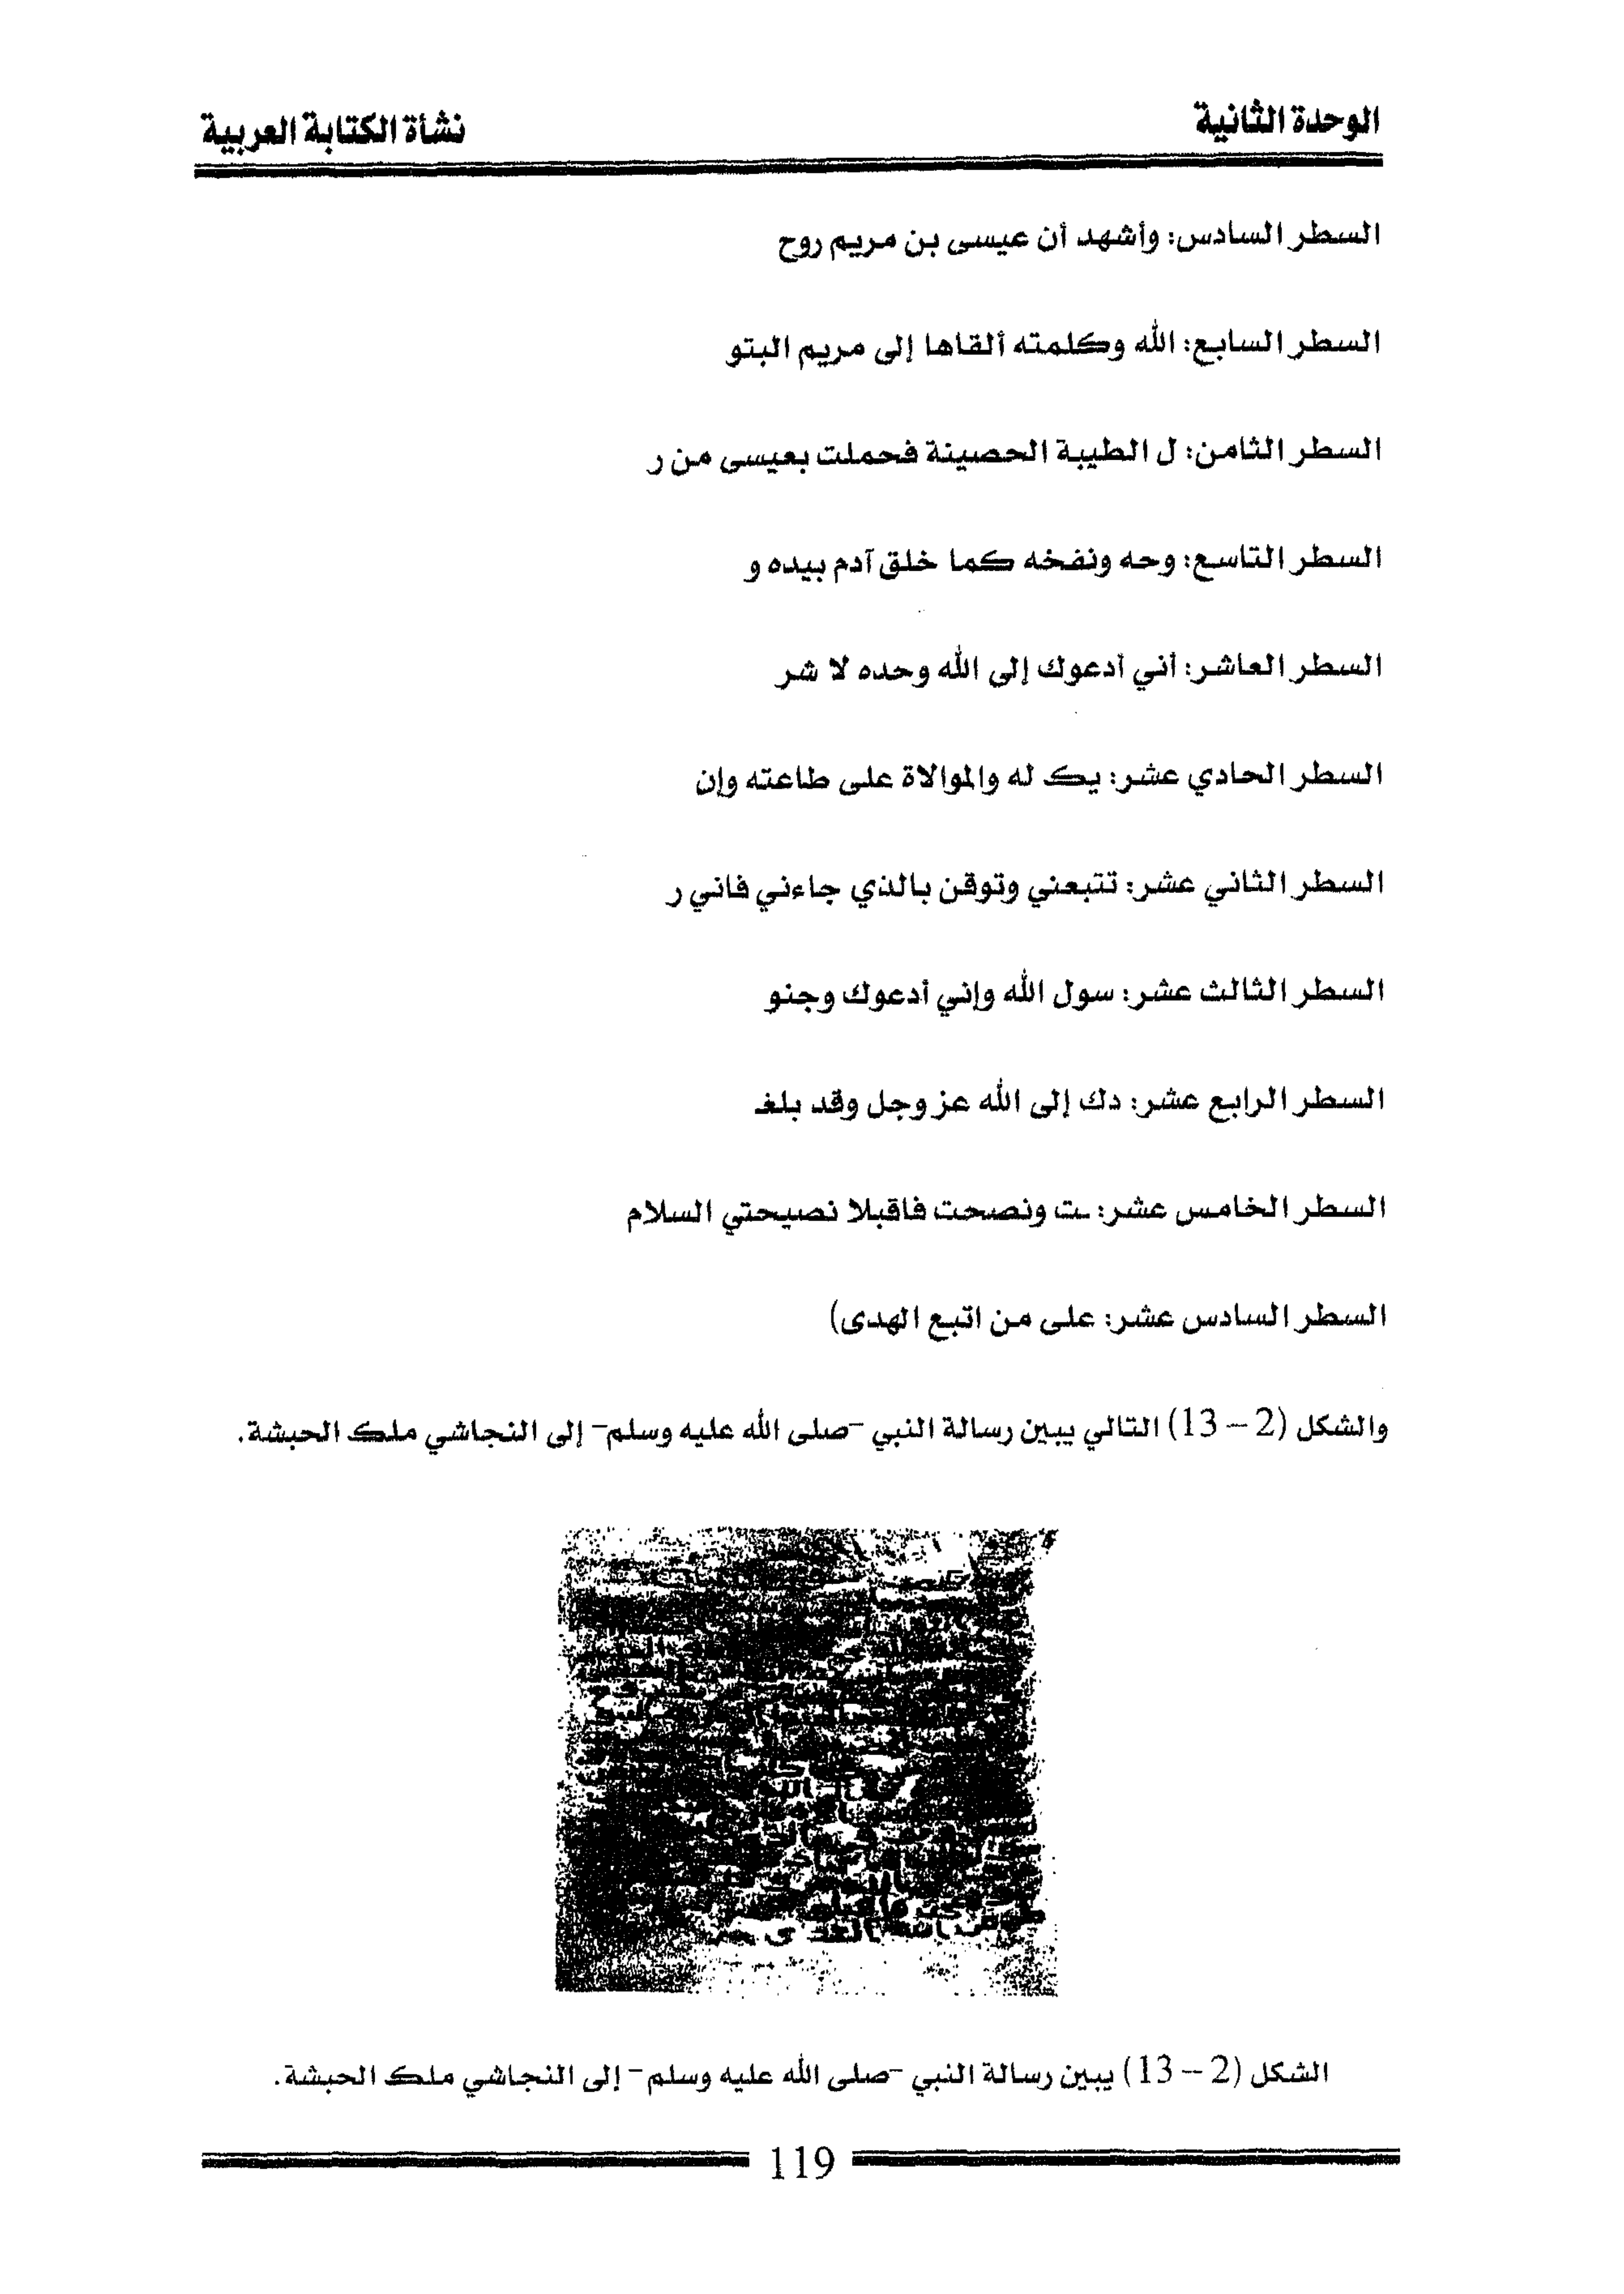 الوحدة الثانية
نشأة الكتابة العربية
السطر السادس: وأشهد أن عيسى بن مريم روح
السطر السابع: الله وكلمته ألقاها إلى مريم البتو
السطر الثامن: ل الطيبة الحصينة فحملت بعيسى من ر
السطر التاسع: وحه ونفخه كما خلق آدم بيده و
السطر العاشر: أني أدعوك إلى الله وحده لا شر
السطر الحادي عشر: يك له والموالاة على طاعته وإن
السطر الثاني عشر: تتبعني وتوقن بالذي جاءني فاني ر
السطر الثالث عشر: سول الله وإني أدعوك وجنو
السطر الرابع عشر: دك إلى الله عز وجل وقد بلغـ
السطر الخامس عشر: ـت ونصحت فاقبلا نصيحتي السلام
السطر السادس عشر: على من اتبع الهدى)
والشكل (2 – 13) التالي يبين رسالة النبي -صلى الله عليه وسلم- إلى النجاشي ملك الحبشة.
الشكل (2 – 13) يبين رسالة النبي -صلى الله عليه وسلم- إلى النجاشي ملك الحبشة.
119